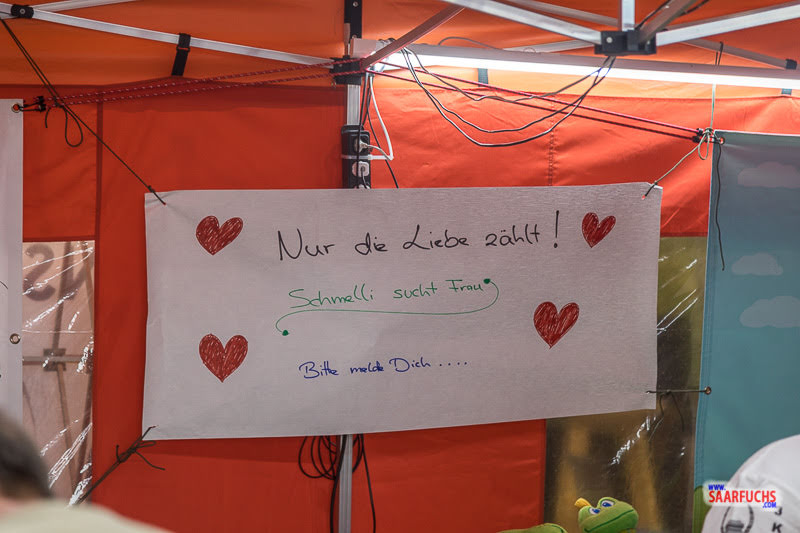 Nur die Liebe zählt!
Schmelli sucht Frau
Bitte melde Dich ....
WWW.
SAARFUCHS
.COM
J
K